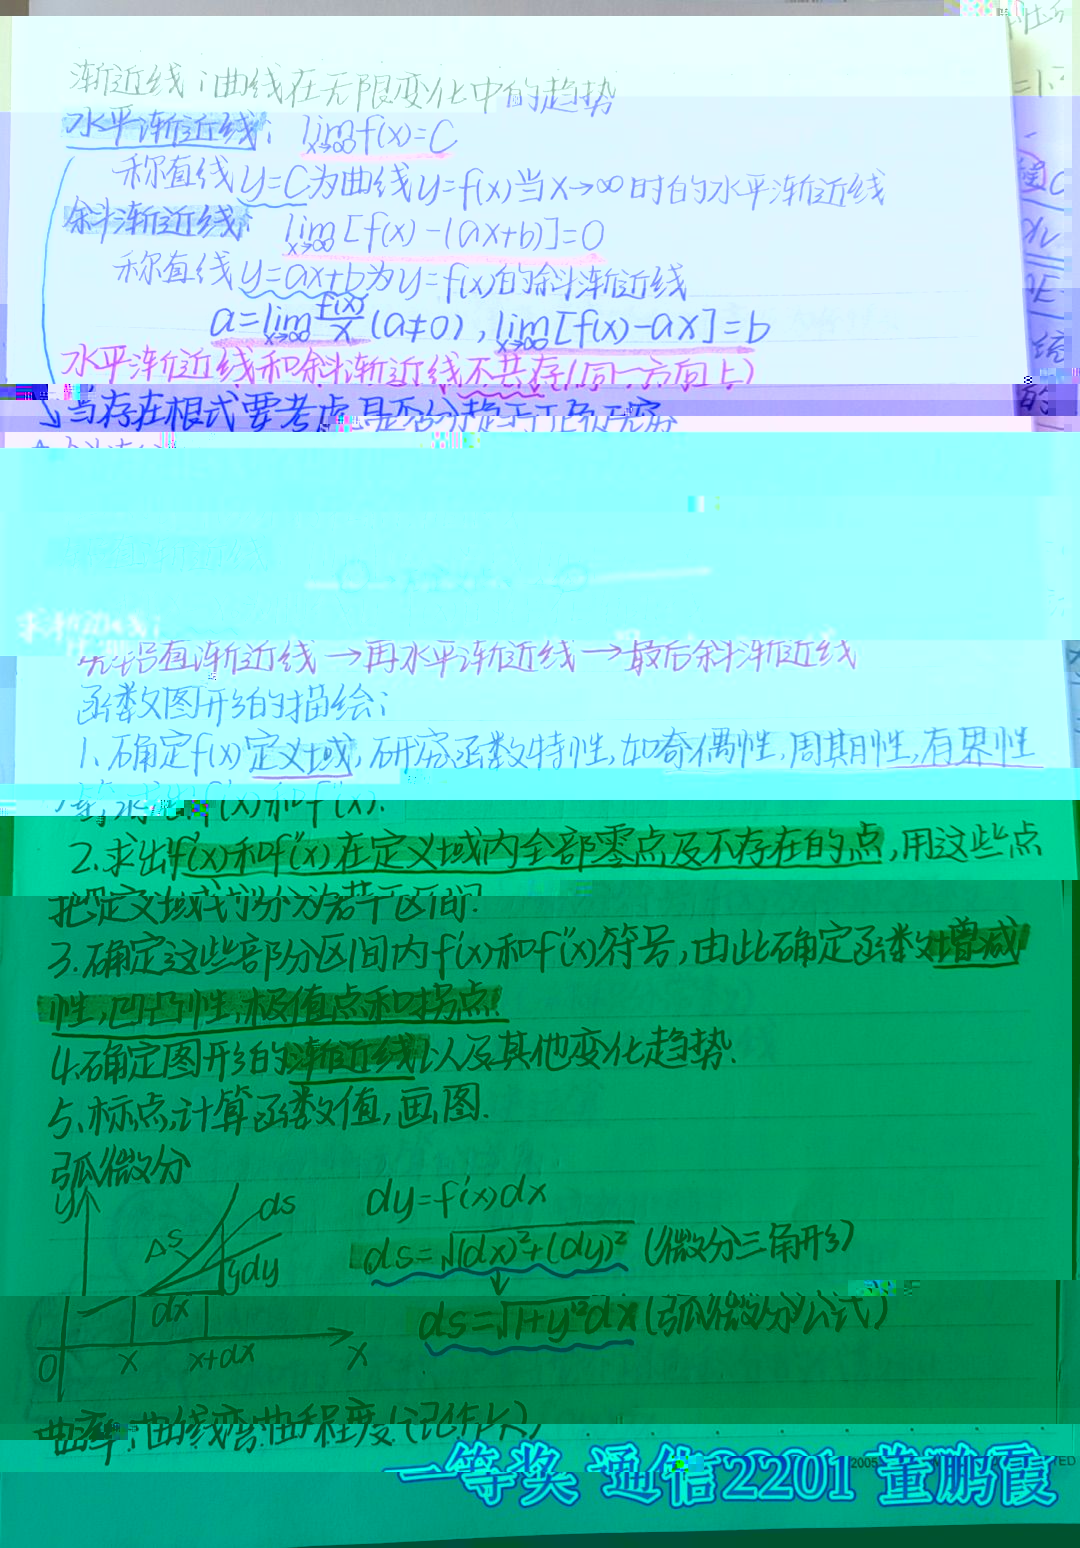 渐近线:曲线在无限变化中的趋势
水平渐近线: lim x→∞ f(x)=C
称直线y=C为曲线y=f(x)当x→∞时的水平渐近线
斜渐近线: lim x→∞ [f(x)-(ax+b)]=0
称直线y=ax+b为y=f(x)的斜渐近线
a=lim x→∞ f(x)/x (a≠0), lim x→∞ [f(x)-ax]=b
水平渐近线和斜渐近线不共存(同一方向上)
当存在根式要考虑是否分趋于正负无穷
直渐近线→再水平渐近线→最后斜渐近线
函数图形的描绘:
1.确定f(x)定义域,研究函数特性,如奇偶性,周期性,有界性
等,求出f'(x)和f''(x).
2.求出f'(x)和f''(x)在定义域内全部零点及不存在的点,用这些点
把定义域划分为若干区间.
3.确定这些部分区间内f'(x)和f''(x)符号,由此确定函数增减
性,凹凸性,极值点和拐点.
4.确定图形的渐近线以及其他变化趋势.
5.标点,计算函数值,画图.
弧微分
y
Δs
ds
dy
dx
O x x+dx x
dy=f'(x)dx
ds=√(dx)²+(dy)² (微分三角形)
ds=√1+y'²dx (弧微分公式)
曲率:曲线弯曲程度(记作K)
一等奖 通信2201 董鹏霞